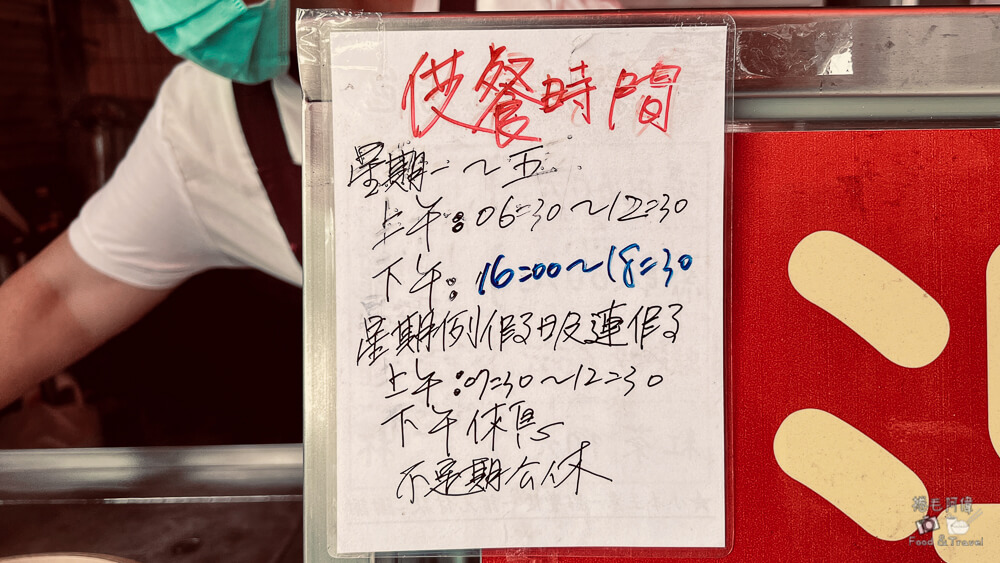 供餐時間
星期一～五
上午：06:30～12:30
下午：16:00～18:30
星期例假日及連假
上午：07:30～12:30
下午休息
不定期公休
Food & Travel